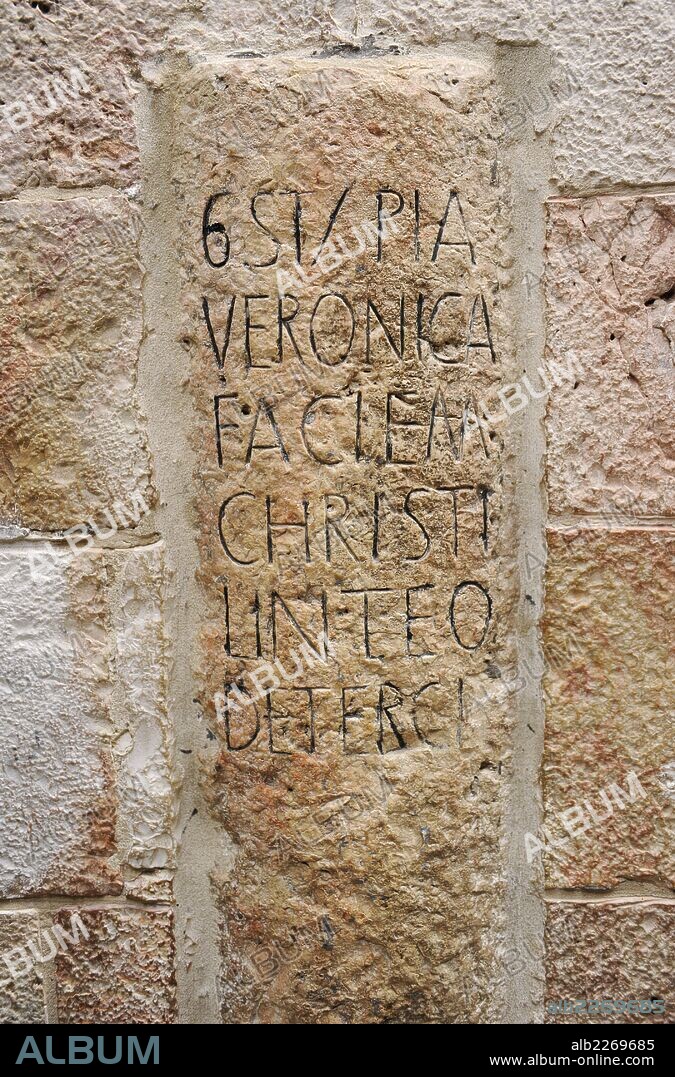 6 ST/ PIA
VERONICA
FACIEM
CHRISTI
LINTEO
DETERCI
ALBUM
alb2269685
ALBUM
alb2269685
www.album-online.com